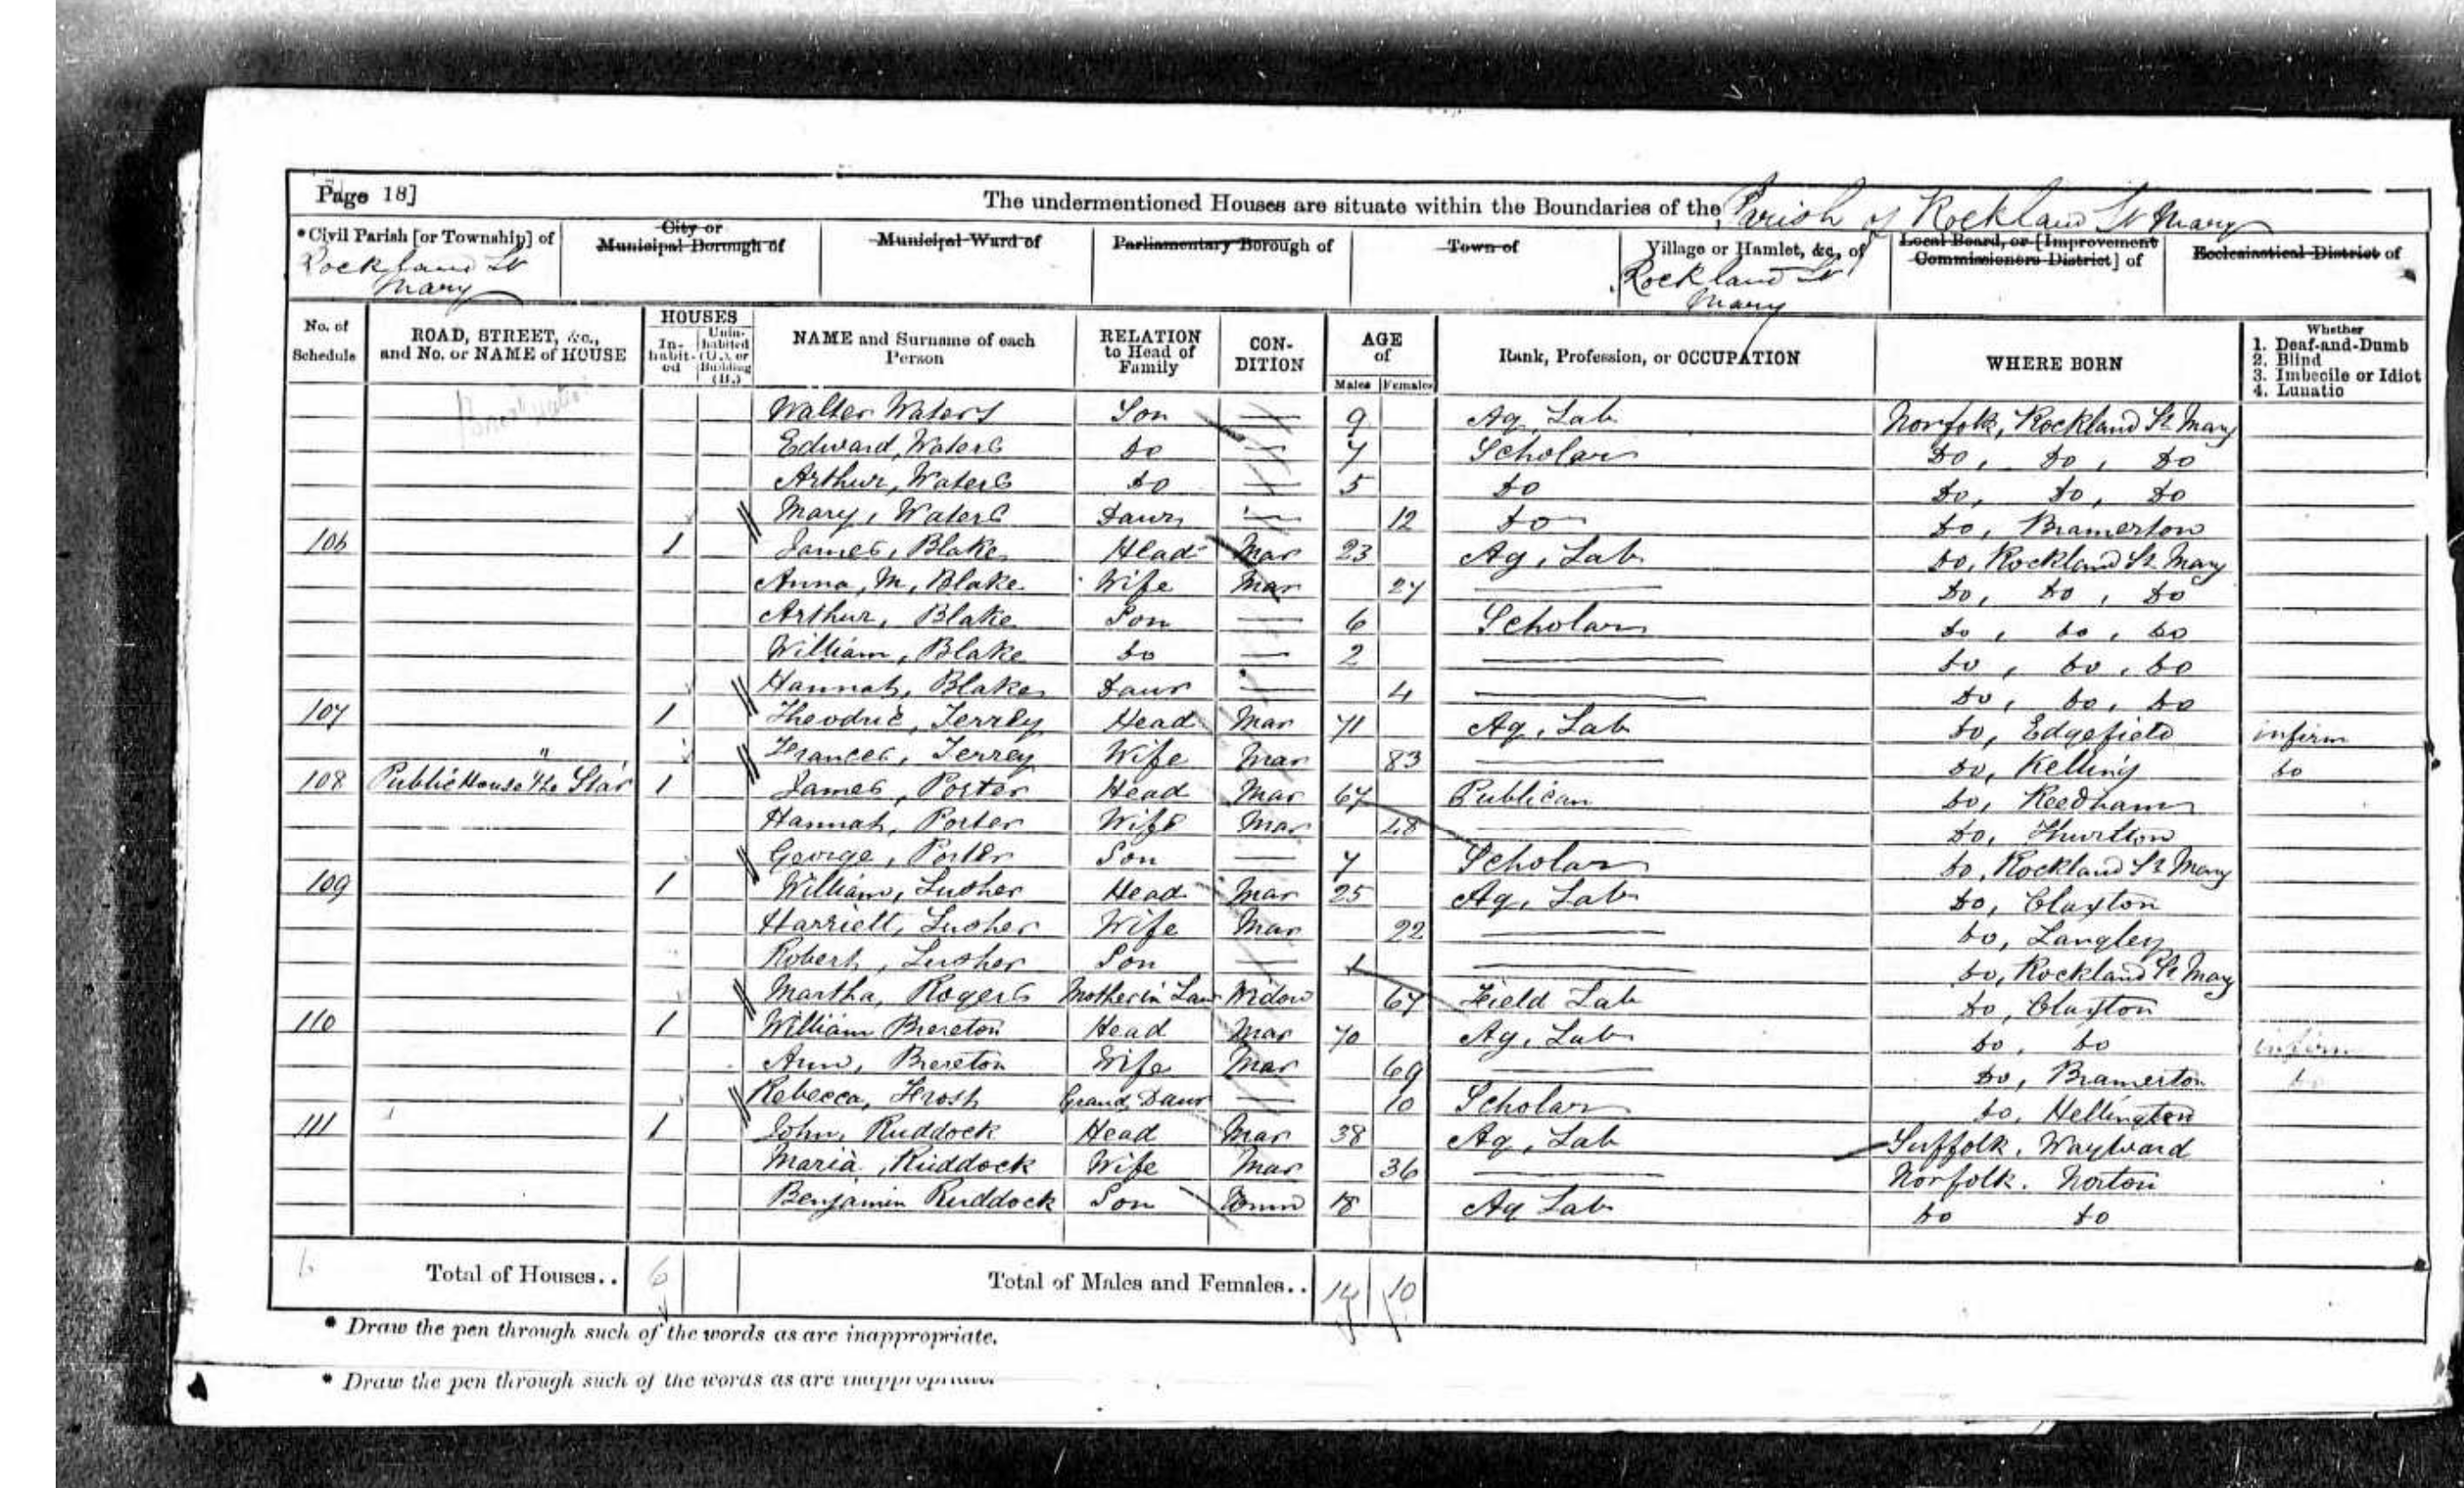 Page 18]
The undermentioned Houses are situate within the Boundaries of the Parish of Rockland St Mary
*Civil Parish [or Township] of
City or Municipal Borough of
Municipal Ward of
Parliamentary Borough of
Town of
Village or Hamlet, &c., of
Local Board, or [Improvement Commissioners District] of
Ecclesiastical District of
Rockland St Mary
Rockland St Mary
No. of Schedule
ROAD, STREET, &c., and No. or NAME of HOUSE
HOUSES
In-habit-ed
Unin-habited (U.), or Building (B.)
NAME and Surname of each Person
RELATION to Head of Family
CON-DITION
AGE of
Males
Females
Rank, Profession, or OCCUPATION
WHERE BORN
Whether
1. Deaf-and-Dumb
2. Blind
3. Imbecile or Idiot
4. Lunatic
Walter Waters Son — 9 Ag, Lab Norfolk, Rockland St Mary
Edward, Waters Do — 7 Scholar Do, Do, Do
Arthur, Waters Do — 5 Do Do, Do, Do
Mary, Waters Daur — 12 Do Do, Bramerton
106 1 James, Blake Head Mar 23 Ag, Lab Do, Rockland St Mary
Anna, M, Blake Wife Mar 27 — Do, Do, Do
Arthur, Blake Son — 6 Scholar Do, Do, Do
William, Blake Do — 2 — Do, Do, Do
Hannah, Blake Daur — 4 — Do, Do, Do
107 1 Theodric, Terrey Head Mar 71 Ag, Lab Do, Edgefield infirm
Frances, Terrey Wife Mar 83 — Do, Kelling Do
108 Public House "The Star 1 James, Porter Head Mar 67 Publican Do, Reedham
Hannah, Porter Wife Mar 48 — Do, Thurlton
George, Porter Son — 7 Scholar Do, Rockland St Mary
109 1 William, Lusher Head Mar 25 Ag, Lab Do, Claxton
Harriett, Lusher Wife Mar 22 — Do, Langley
Robert, Lusher Son — 1 — Do, Rockland St Mary
Martha, Rogers Mother in Law Widow 67 Field Lab Do, Claxton
110 1 William Brereton Head Mar 70 Ag, Lab Do, Do infirm
Ann, Brereton Wife Mar 69 — Do, Bramerton
Rebecca, Frosh Grand Daur — 10 Scholar Do, Hellington
111 1 John, Ruddock Head Mar 38 Ag, Lab Suffolk, Wayward
Maria, Ruddock Wife Mar 36 — Norfolk. Norton
Benjamin Ruddock Son Unm 18 Ag Lab Do Do
6 Total of Houses.. 6 Total of Males and Females.. 14 10
* Draw the pen through such of the words as are inappropriate.
* Draw the pen through such of the words as are inappropriate.